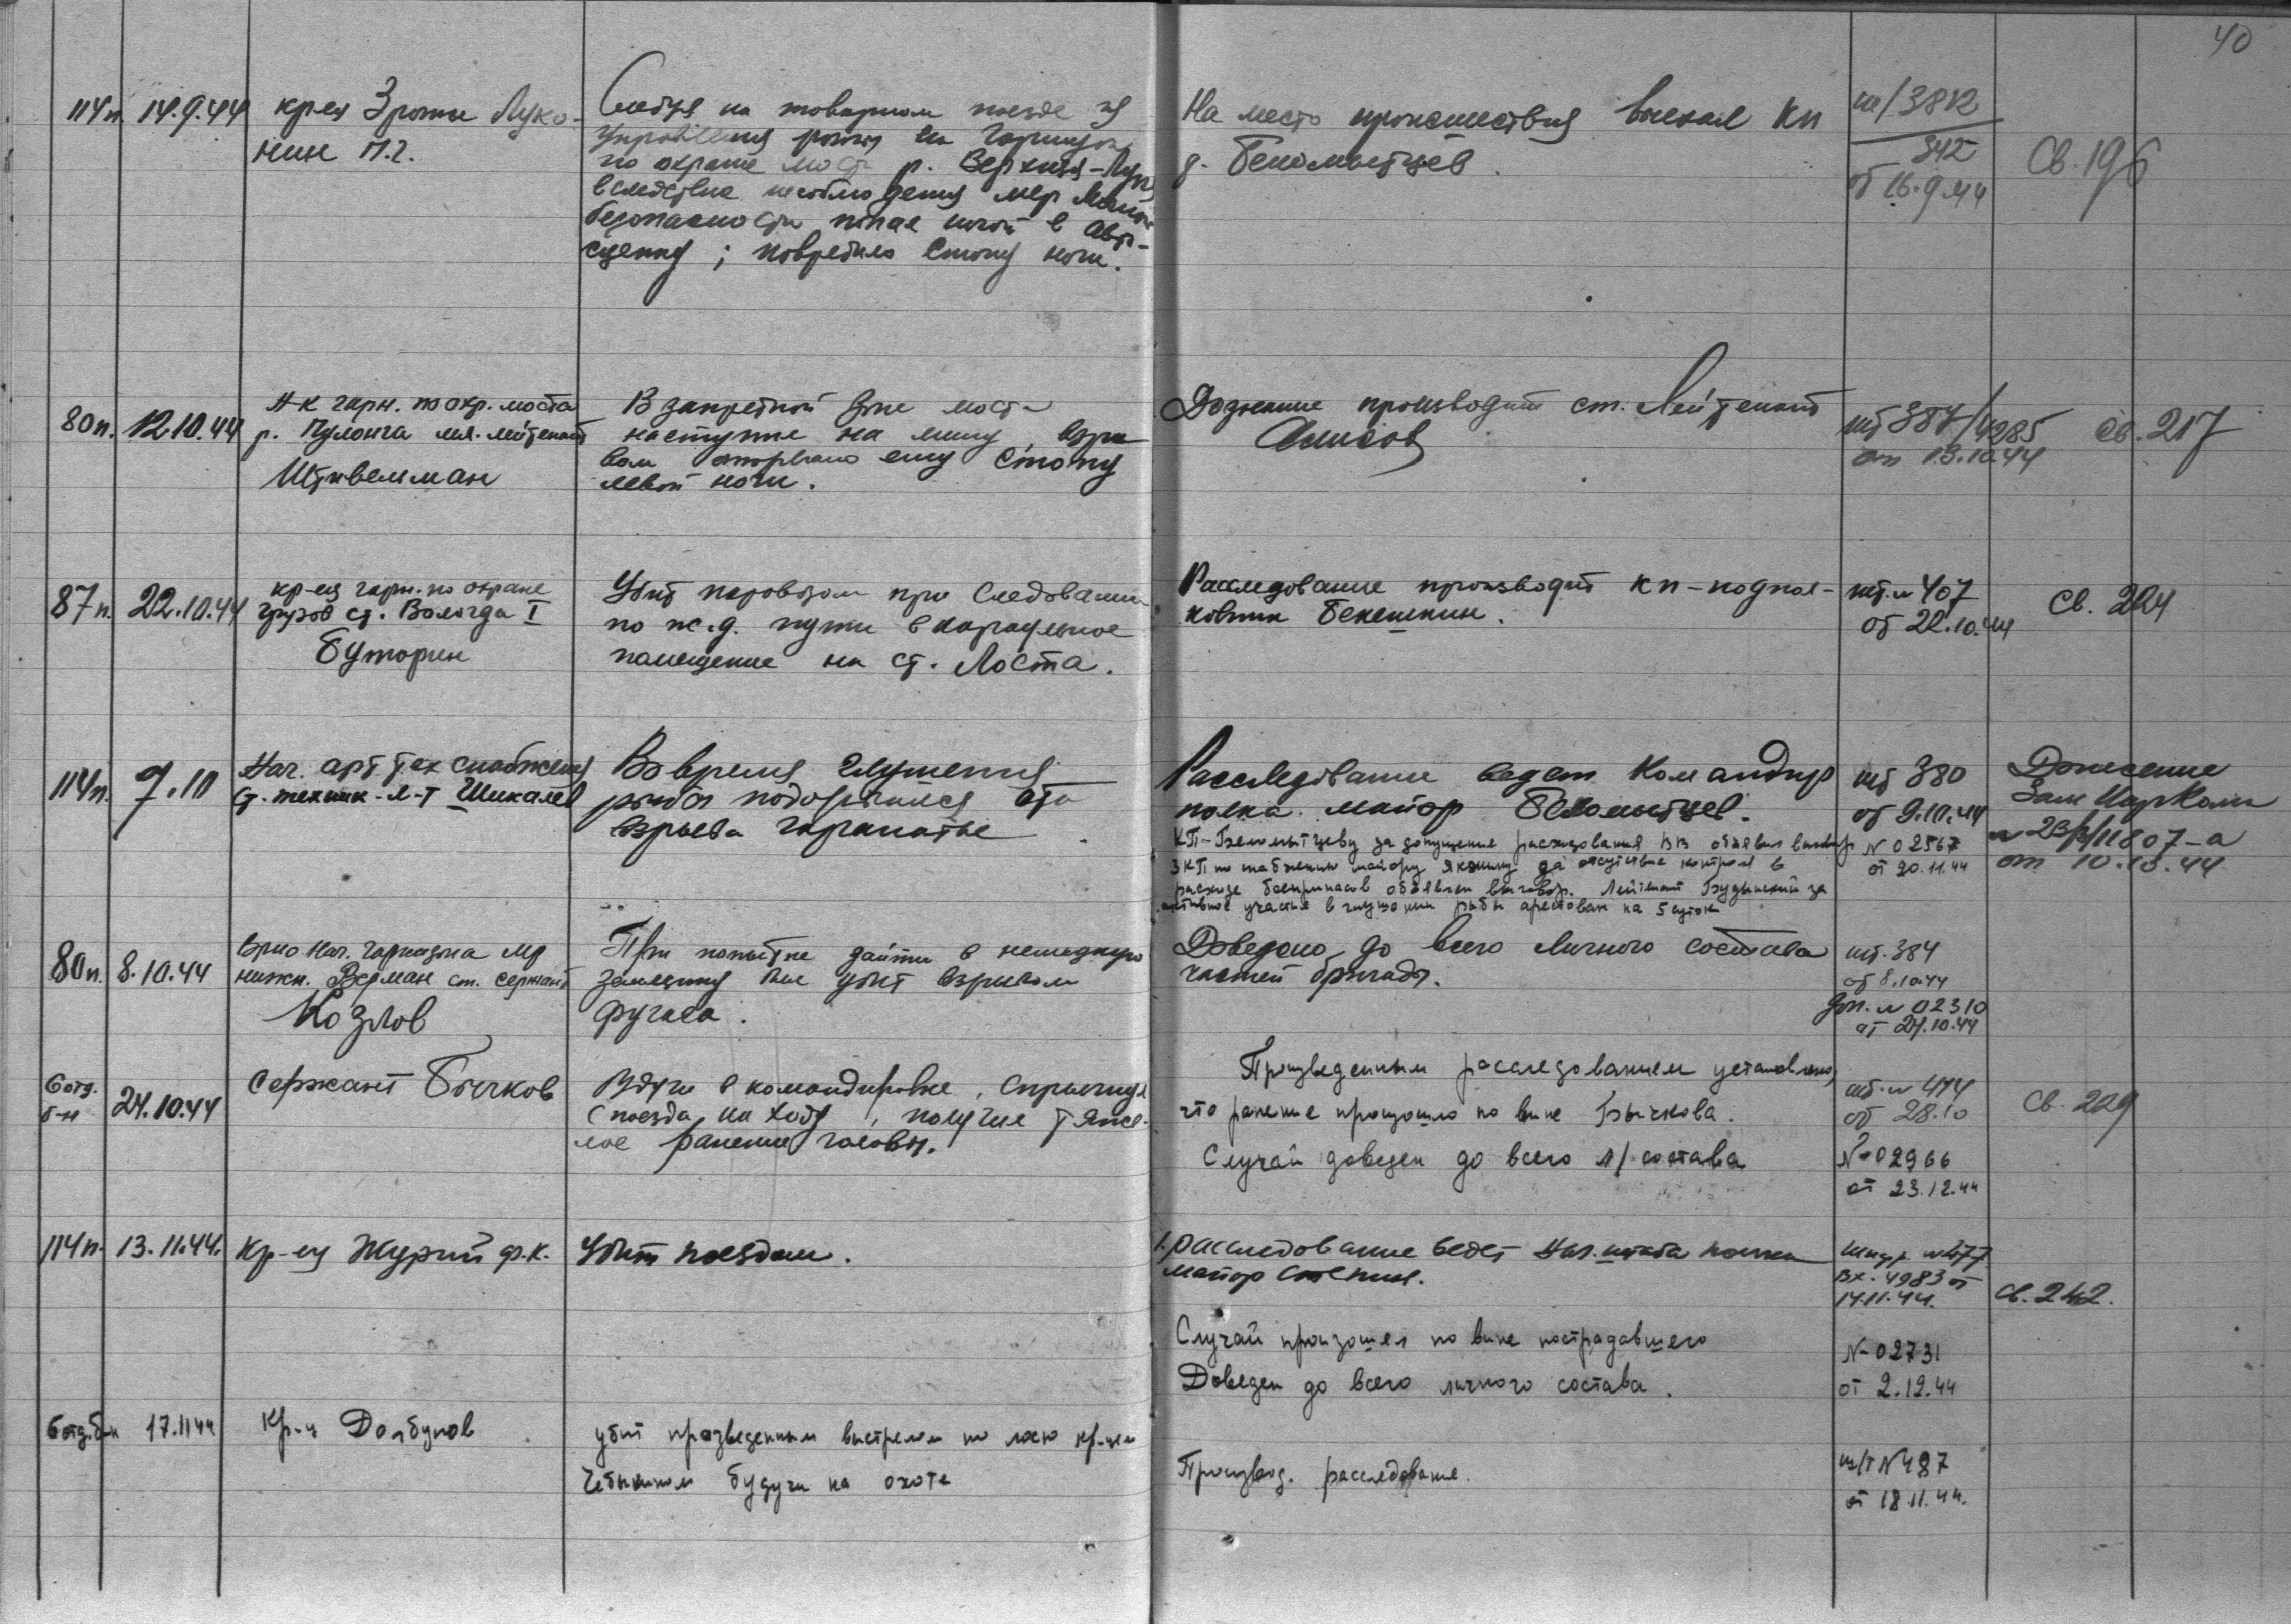 40
114п 14.9.44 кр-ец 3 роты Луко-
нин П.г.
Следуя на товарном поезде из
управления роты на гарнизон
по охране моста р. Верхняя-
вследствие несоблюдения мер личной
безопасности попал ногой в авто-
сцепку; повредило стопу ноги.
На место происшествия выехал КП
Беломытцев.
ш/3812
342
от 16.9.44
Св. 196
80п. 12.10.44 Н-к гарн. по охр. моста
р. Пулонга мл. лейтенант
Штивельман
В запретной зоне моста
наступил на мину, взры
вом оторвало ему стопу
левой ноги.
Дознание производит ст. Лейтенант
Алисов
шт 387/4285
от 13.10.44
св. 217
87п. 22.10.44 кр-ец гарн. по охране
грузов ст. Вологда I
Буторин
Убит паровозом при следовании
по ж.д. пути в караульное
помещение на ст. Лоста.
Расследование производит КП-подпол-
ковник Бекешкин.
шт. № 407
от 22.10.44
св. 224
114п. 7.10 Нач. арт тех снабжения
ст. техник-л-т Шикалев
Во время глушения
рыбы подорвался от
взрыва гаранаты
Расследование ведет Командир
полка майор Беломытцев.
КП-Беломытцеву за допущение расходования ВВ объявлен выговор
ЗКП по снабжению майору Якшину за отсутствие контроля в
расходе боеприпасов объявлен выговор. Лейтенант Будынский за
активное участие в глушении рыбы арестован на 5 суток
шт 380
от 9.10.44
N 02567
от 20.11.44
Донесение
Зам НарКома
№ 23/3/11807-а
от 10.10.44
80п. 8.10.44 Врио нач. гарнизона мр
нижн. Верман ст. сержант
Козлов
При попытке зайти в немецкую
землянку был убит взрывом
фугаса.
Доведено до всего личного состава
частей бригады.
шт. 384
от 8.10.44
доп. № 02310
от 24.10.44
6 отд.
б-н 24.10.44 Сержант Бычков
Будучи в командировке, спрыгнул
с поезда на ходу, получил тяже-
лое ранение головы.
Произведенным расследованием установлено,
что ранение произошло по вине Бычкова.
Случай доведен до всего л/состава
шт. № 414
от 28.10
N-02966
от 23.12.44
Св. 229
114п. 13.11.44. Кр-ец Журий Ф.К. Убит поездом.
Расследование ведет Нач. штаба полка
майор
Случай произошел по вине пострадавшего
Доведен до всего личного состава.
Вх. 4983 от
14.11.44.
N-02731
от 2.12.44
св. 242.
6 отд.б-н 17.11.44 Кр-ц Долбунов
убит произведенным выстрелом по лосю кр-цем
будучи на охоте
Производ. расследование.
ш/т N 487
от 18.11.44.